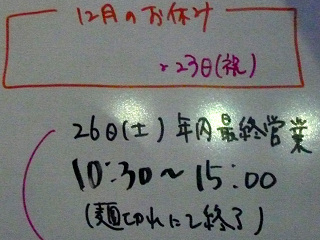 12月のお休み
・23日(祝)
26日(土)年内最終営業
10:30〜15:00
(麺切れにて終了)